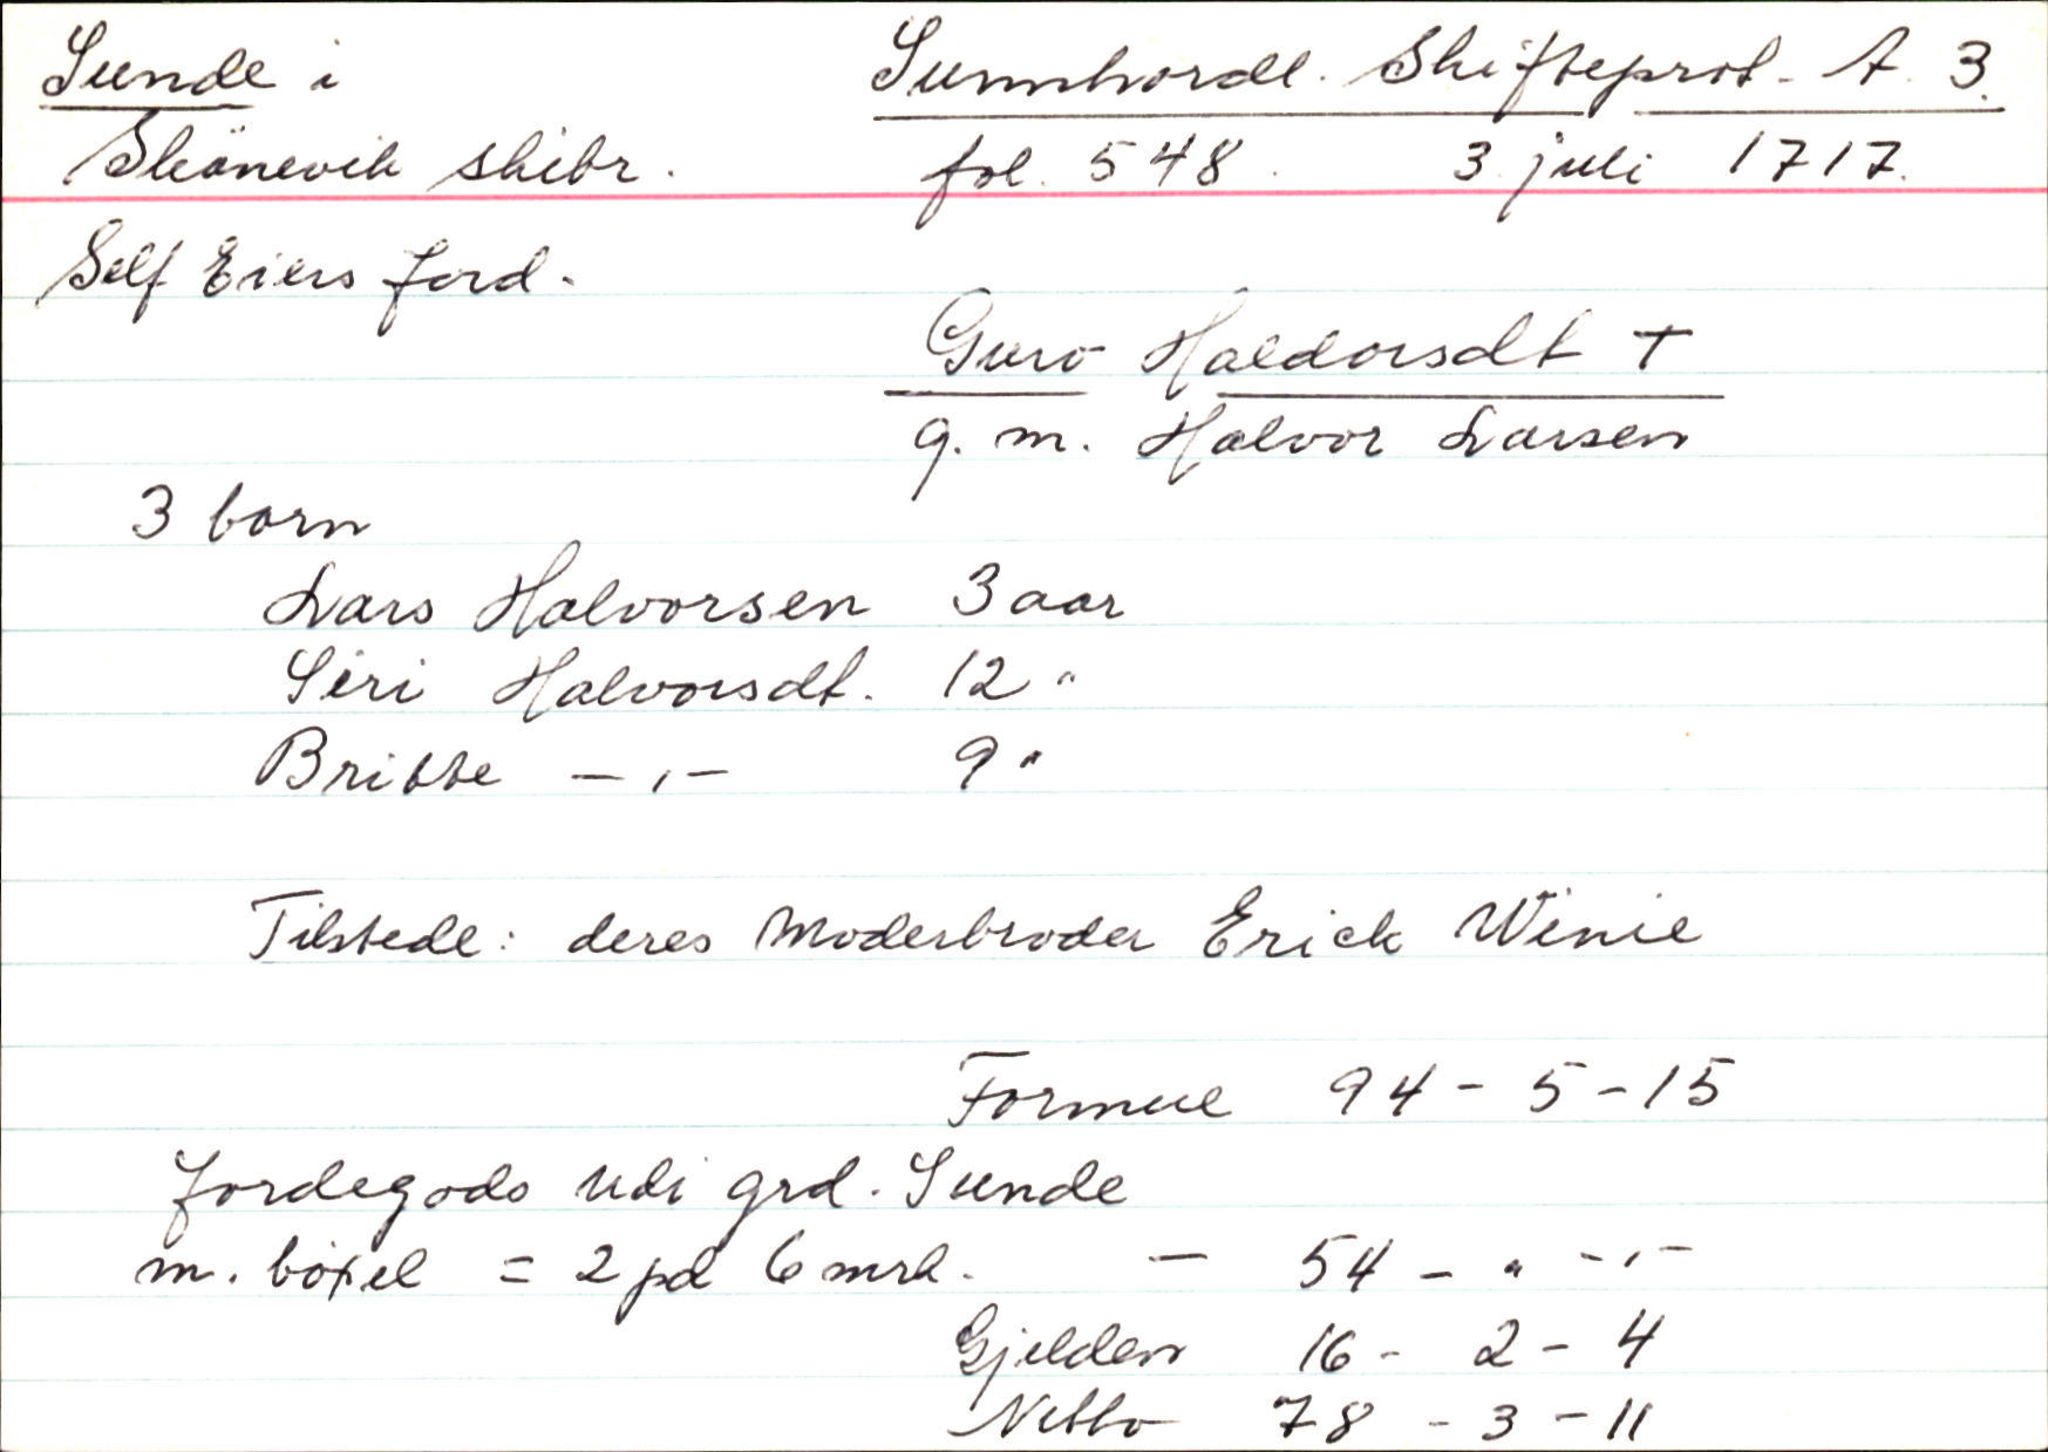 Sunde i
Skånevik skibr.
Sunnhordl. Skifteprot. A. 3.
fol. 548. 3 juli 1717.
Self Eiers Jord.
Guro Haldorsdt +
g. m. Halvor Larsen
3 born
Lars Halvorsen 3 aar
Siri Halvorsdt. 12 "
Britte - , - 9 "
Tilstede: deres Moderbroder Erick Winie
Formue 94 - 5 - 15
Jordegods udi grd. Sunde
m. böxel = 2 pd 6 mrk. - 54 - " - , -
Gjelden 16 - 2 - 4
Netto 78 - 3 - 11